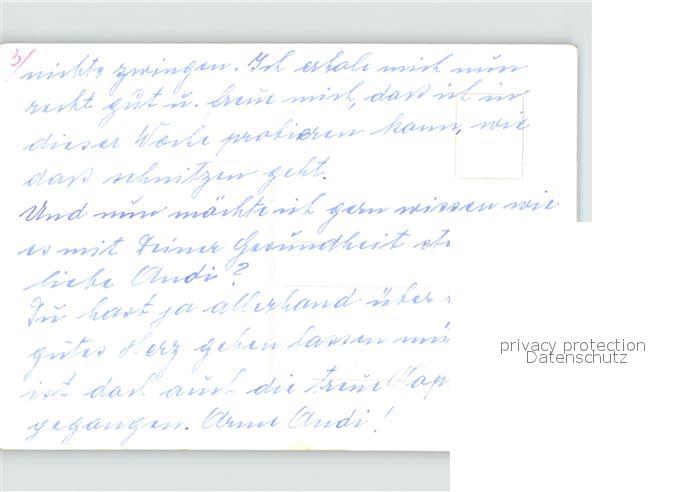 3/
nichts zwingen. Ich erhole mich nun
recht gut u. freue mich, daß ich in
dieser Woche probieren kann, wie
daß schnitzen geht.
Und nun möchte ich gern wissen wie
es mit Deiner Gesundheit ste
liebe Andi?
Du hast ja allerhand über
gutes Herz gehen lassen mü
ist doch auch die treue
gegangen. Arme Andi!
privacy protection
Datenschutz